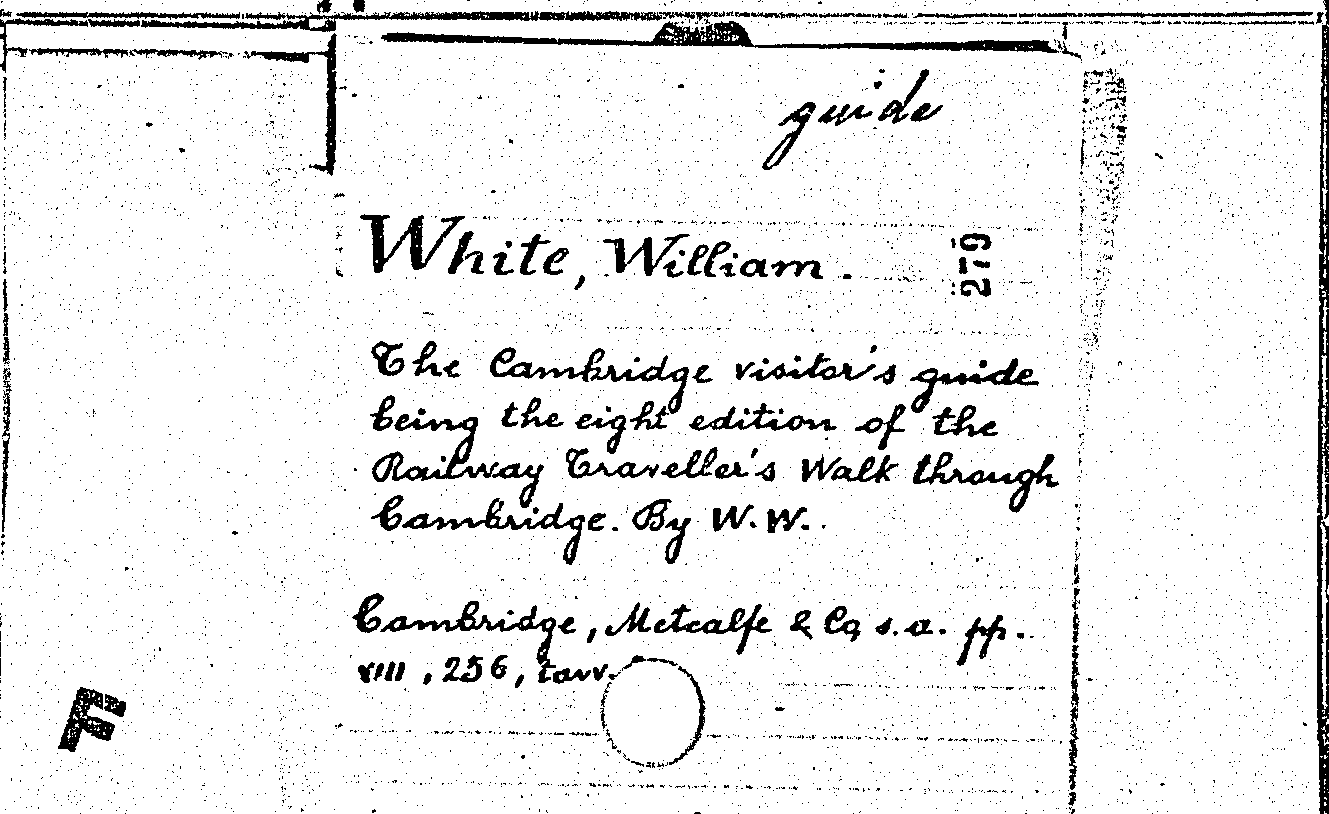 guide
White, William.
279
The Cambridge visitor's guide
being the eight edition of the
Railway Traveller's Walk through
Cambridge. By W. W.
Cambridge, Metcalfe & Co, s.a. pp.
VIII, 256, tavv.
F